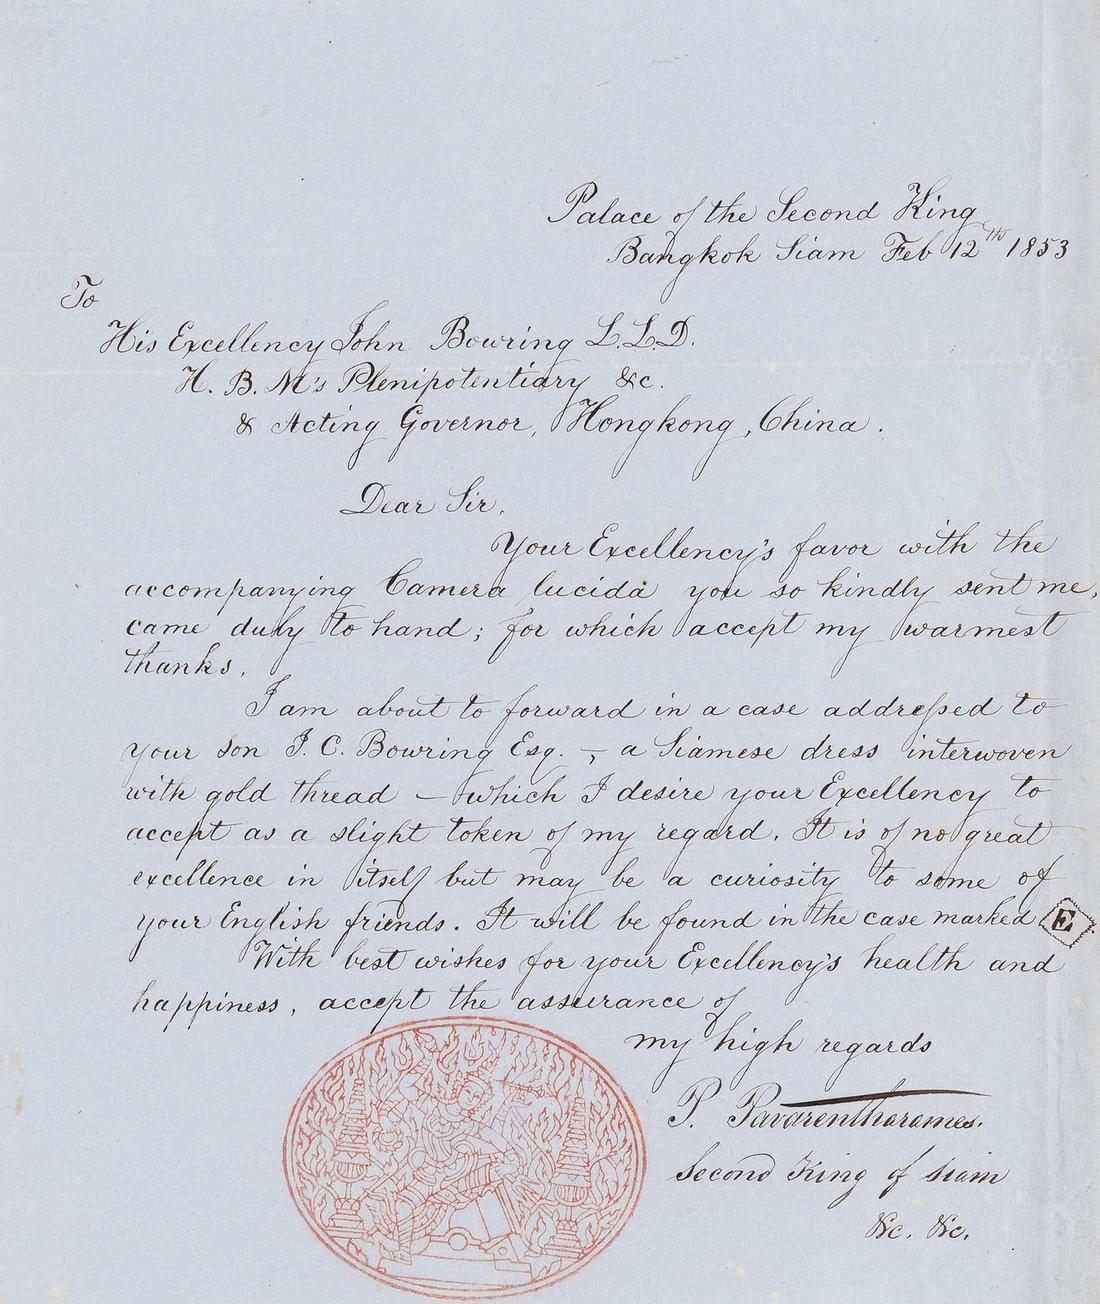 Palace of the Second King
Bangkok Siam Feb 12th 1853
To
His Excellency John Bowring L.L.D.
H. B. M's Plenipotentiary &c.
& Acting Governor, Hongkong, China.
Dear Sir,
Your Excellency's favor with the
accompanying Camera lucida you so kindly sent me,
came duly to hand; for which accept my warmest
thanks.
I am about to forward in a case addressed to
your son J. C. Bowring Esq. – a Siamese dress interwoven
with gold thread – which I desire your Excellency to
accept as a slight token of my regard. It is of no great
excellence in itself but may be a curiosity to some of
your English friends. It will be found in the case marked E
With best wishes for your Excellency's health and
happiness, accept the assurance of
my high regards
P. Pavarentharames.
Second King of Siam
&c. &c.